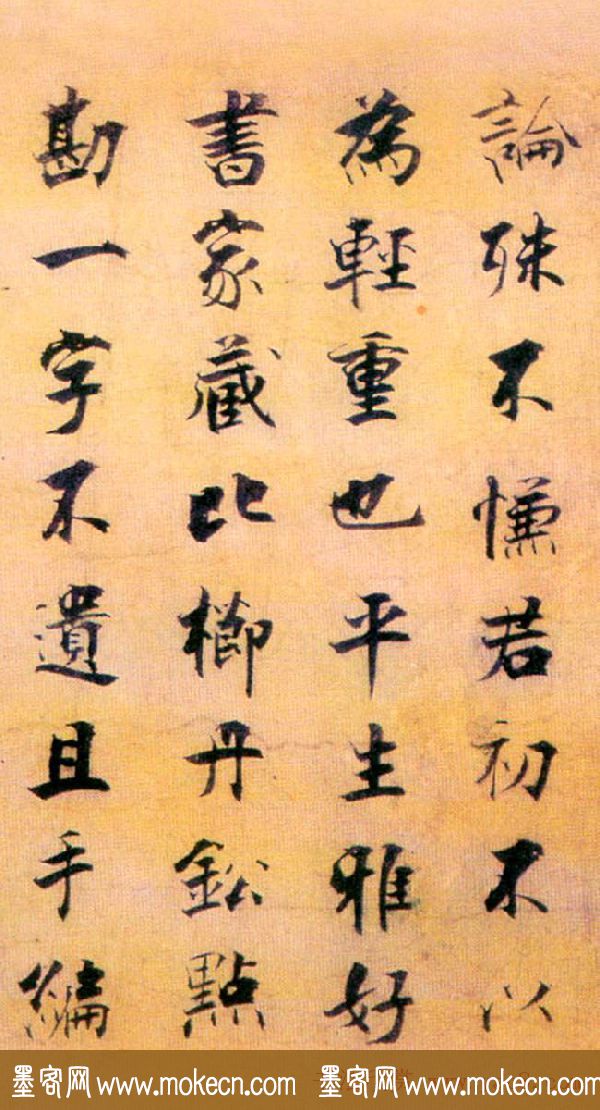 論殊不慊若初不以
為輕重也平生雅好
書家藏比櫛丹鈆點
勘一字不遺且手編
墨客网 www.mokecn.com 墨客网 www.mokecn.com